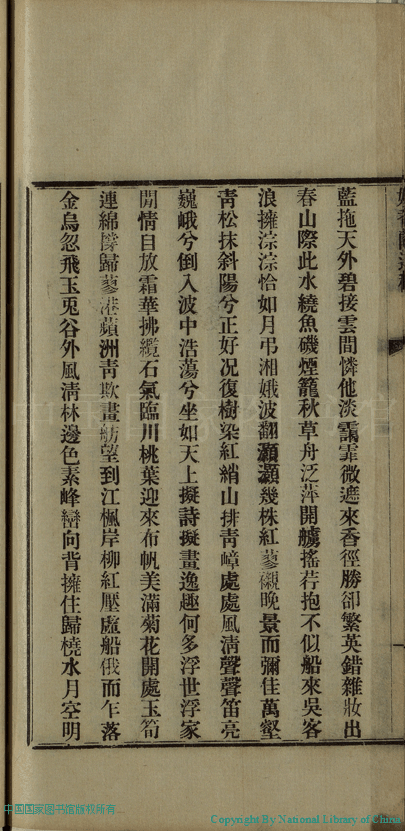 藍拖天外碧接雲間憐他淡靄霏微遮來香徑勝卻繁英錯雜妝出
春山際此水繞魚磯煙籠秋草舟泛萍開艣搖荇抱不似船來吳客
浪擁淙淙恰如月弔湘娥波翻灝灝幾株紅蓼襯晚景而彌佳萬壑
青松抹斜陽兮正好况復樹染紅綃山排青嶂處處風清聲聲笛亮
巍峨兮倒入波中浩蕩兮坐如天上擬詩擬畫逸趣何多浮世浮家
閒情自放霜華拂纜石氣臨川桃葉迎來布帆美滿菊花開處玉筍
連綿撐歸蓼港蘋洲青欺畫舫望到江楓岸柳紅壓廬船俄而乍落
金烏忽飛玉兎谷外風清林邊色素峰巒向背擁住歸橈水月空明
中国国家图书馆版权所有
Copyright By National Library of China